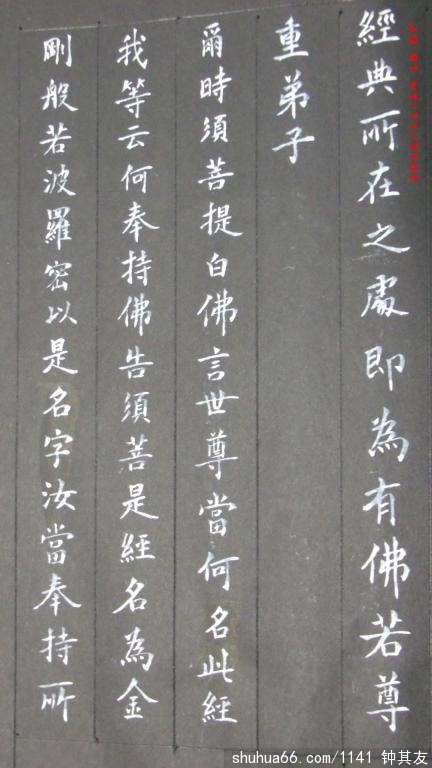 經典所在之處即為有佛若尊
重弟子
爾時須菩提白佛言世尊當何名此經
我等云何奉持佛告須菩是經名為金
剛般若波羅密以是名字汝當奉持所
shuhua66.com/1141 钟其友